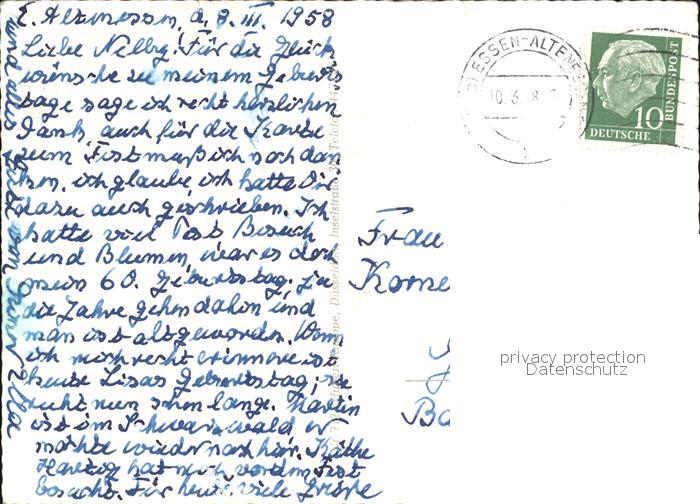 E. Altenessen, d. 8. III. 1958
Liebe Nelly! Für die Glück
wünsche zu meinem Geburts
tage sage ich recht herzlichen
Dank, auch für die Karte
zum Fest muß ich noch dan
ken, ich glaube, ich hatte Dir
dazu auch geschrieben. Ich
hatte viel Post Besuch
und Blumen, war es doch
mein 60. Geburtstag. Ja
die Jahre gehen dahin und
man ist alt geworden. Wenn
ich mich recht erinnere ist
heute Lisas Geburtstag; sie
ruht nun schon lange. Martin
ist im Schwarzwald er
möchte wieder nach hier. Käthe
Hartzog hat mich vor dem Fest
besucht. Für heute viele Grüße
und alles Liebe von
ESSEN-ALTENE
10. 3. 8
10
DEUTSCHE
BUNDESPOST
Frau
Korne
Ba
privacy protection
Datenschutz
Düsseldorf, Inselstraße